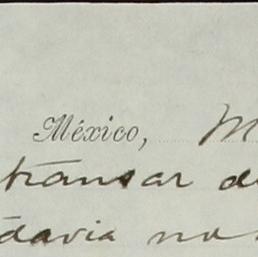 México, M
transar de
davia no